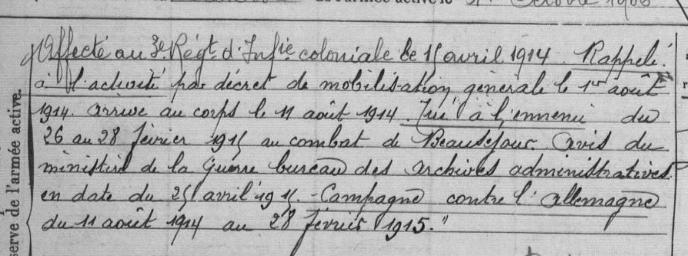 Octobre 1906
Affecté au 3e Régt d'Infie coloniale le 15 avril 1914. Rappelé
à l'activité par décret de mobilisation générale le 1er août
1914. arrivé au corps le 11 août 1914. Tué à l'ennemi du
26 au 28 février 1915 au combat de Beauséjour. avis du
ministère de la Guerre bureau des archives administratives
en date du 25 avril 1915. Campagne contre l'Allemagne
du 11 août 1914 au 28 février 1915."
serve de l'armée active.